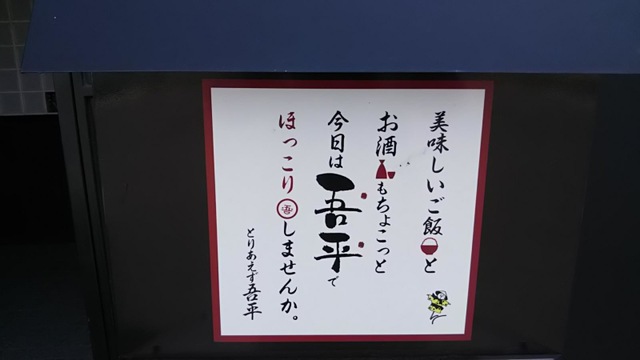 美味しいご飯と
お酒もちょこっと
今日は吾平で
ほっこりしませんか。
とりあえず吾平